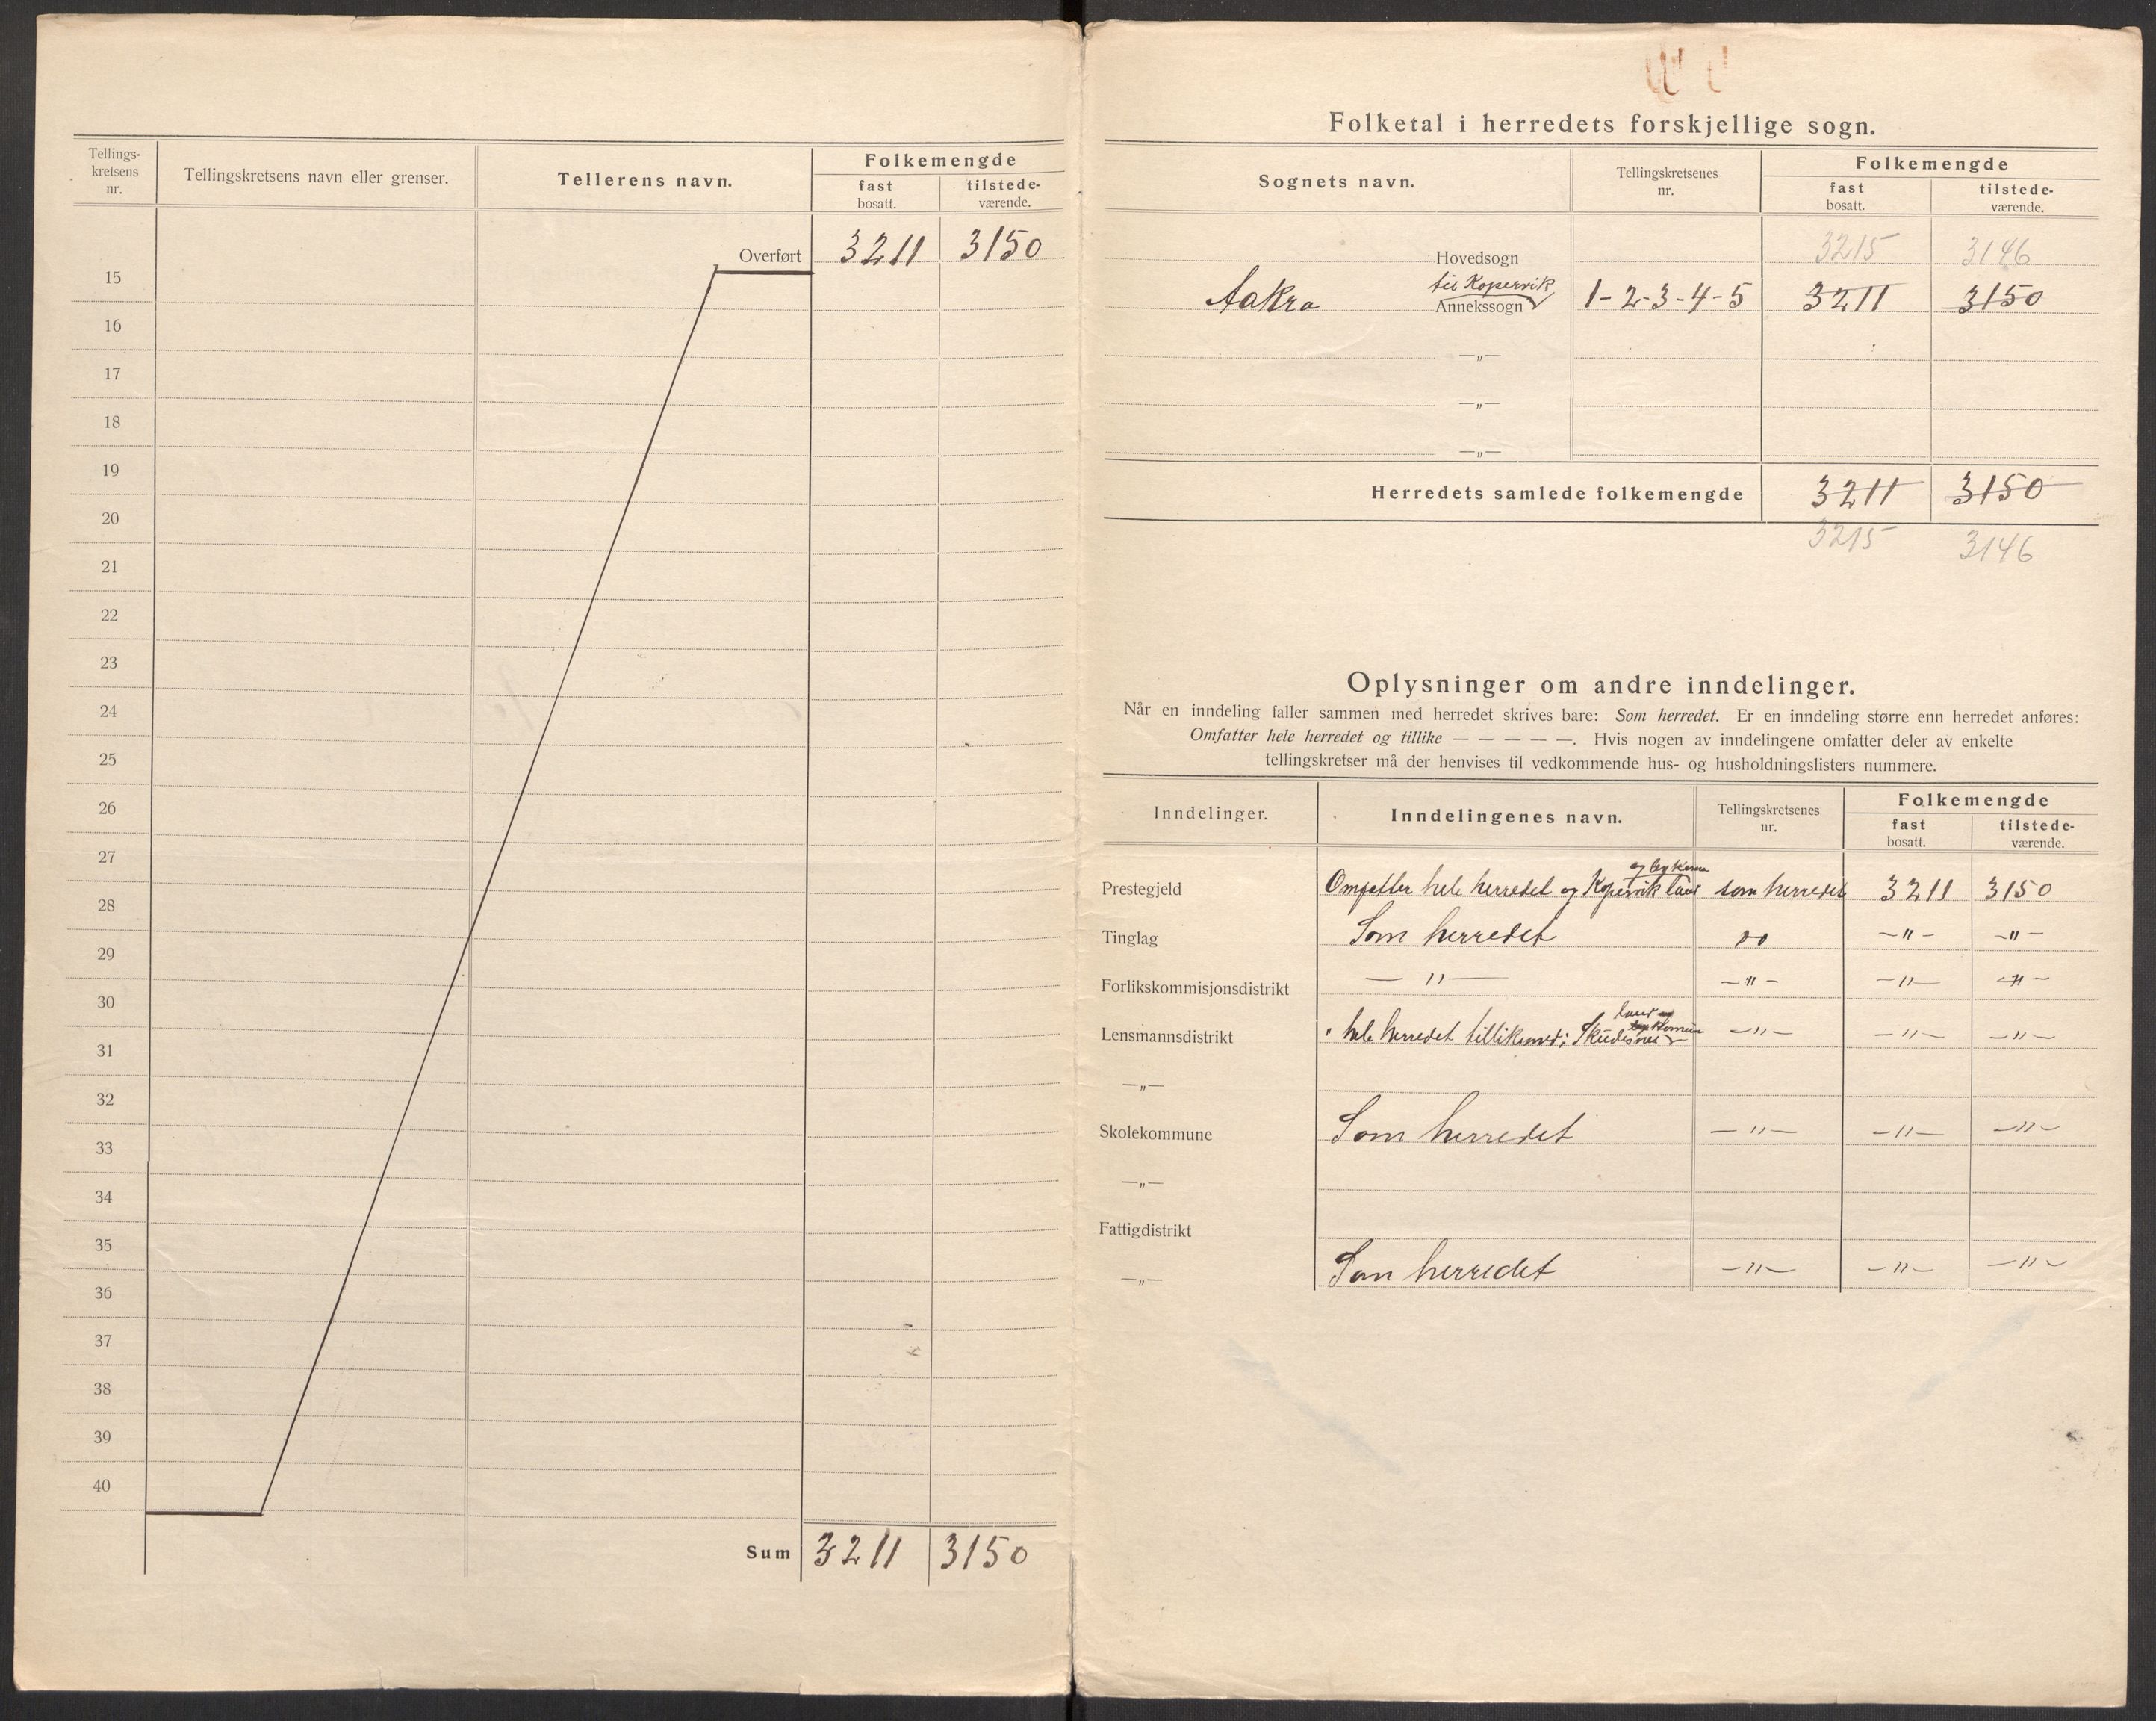 Tellings-
kretsens
nr.
Tellingskretsens navn eller grenser.
Tellerens navn.
Folkemengde
fast
bosatt.
tilstede-
værende.
Overført 3211 3150
15
16
17
18
19
20
21
22
23
24
25
26
27
28
29
30
31
32
33
34
35
36
37
38
39
40
Sum 3211 3150
Folketal i herredets forskjellige sogn.
Sognets navn.
Tellingskretsenes
nr.
Folkemengde
fast
bosatt.
tilstede-
værende.
Hovedsogn 3215 3146
til Kopervik
Aakra Annekssogn 1-2-3-4-5 3211 3150
—„—
—„—
—„—
Herredets samlede folkemengde 3211 3150
3215 3146
Oplysninger om andre inndelinger.
Når en inndeling faller sammen med herredet skrives bare: Som herredet. Er en inndeling større enn herredet anføres:
Omfatter hele herredet og tillike — — — — —. Hvis nogen av inndelingene omfatter deler av enkelte
tellingskretser må der henvises til vedkommende hus- og husholdningslisters nummere.
Inndelinger.
Inndelingenes navn.
Tellingskretsenes
nr.
Folkemengde
fast
bosatt.
tilstede-
værende.
Prestegjeld Omfatter hele herredet og Kopervik land som herredet 3211 3150
Tinglag Som herredet -"- -"-
Forlikskommisjonsdistrikt — " — -"- -"- -"-
Lensmannsdistrikt " hele herredet tillikemed: Skudesnes -"- -"- -"-
—„—
Skolekommune Som herredet -"- -"- -"-
—„—
Fattigdistrikt
—„— Som herredet -"- -"- -"-